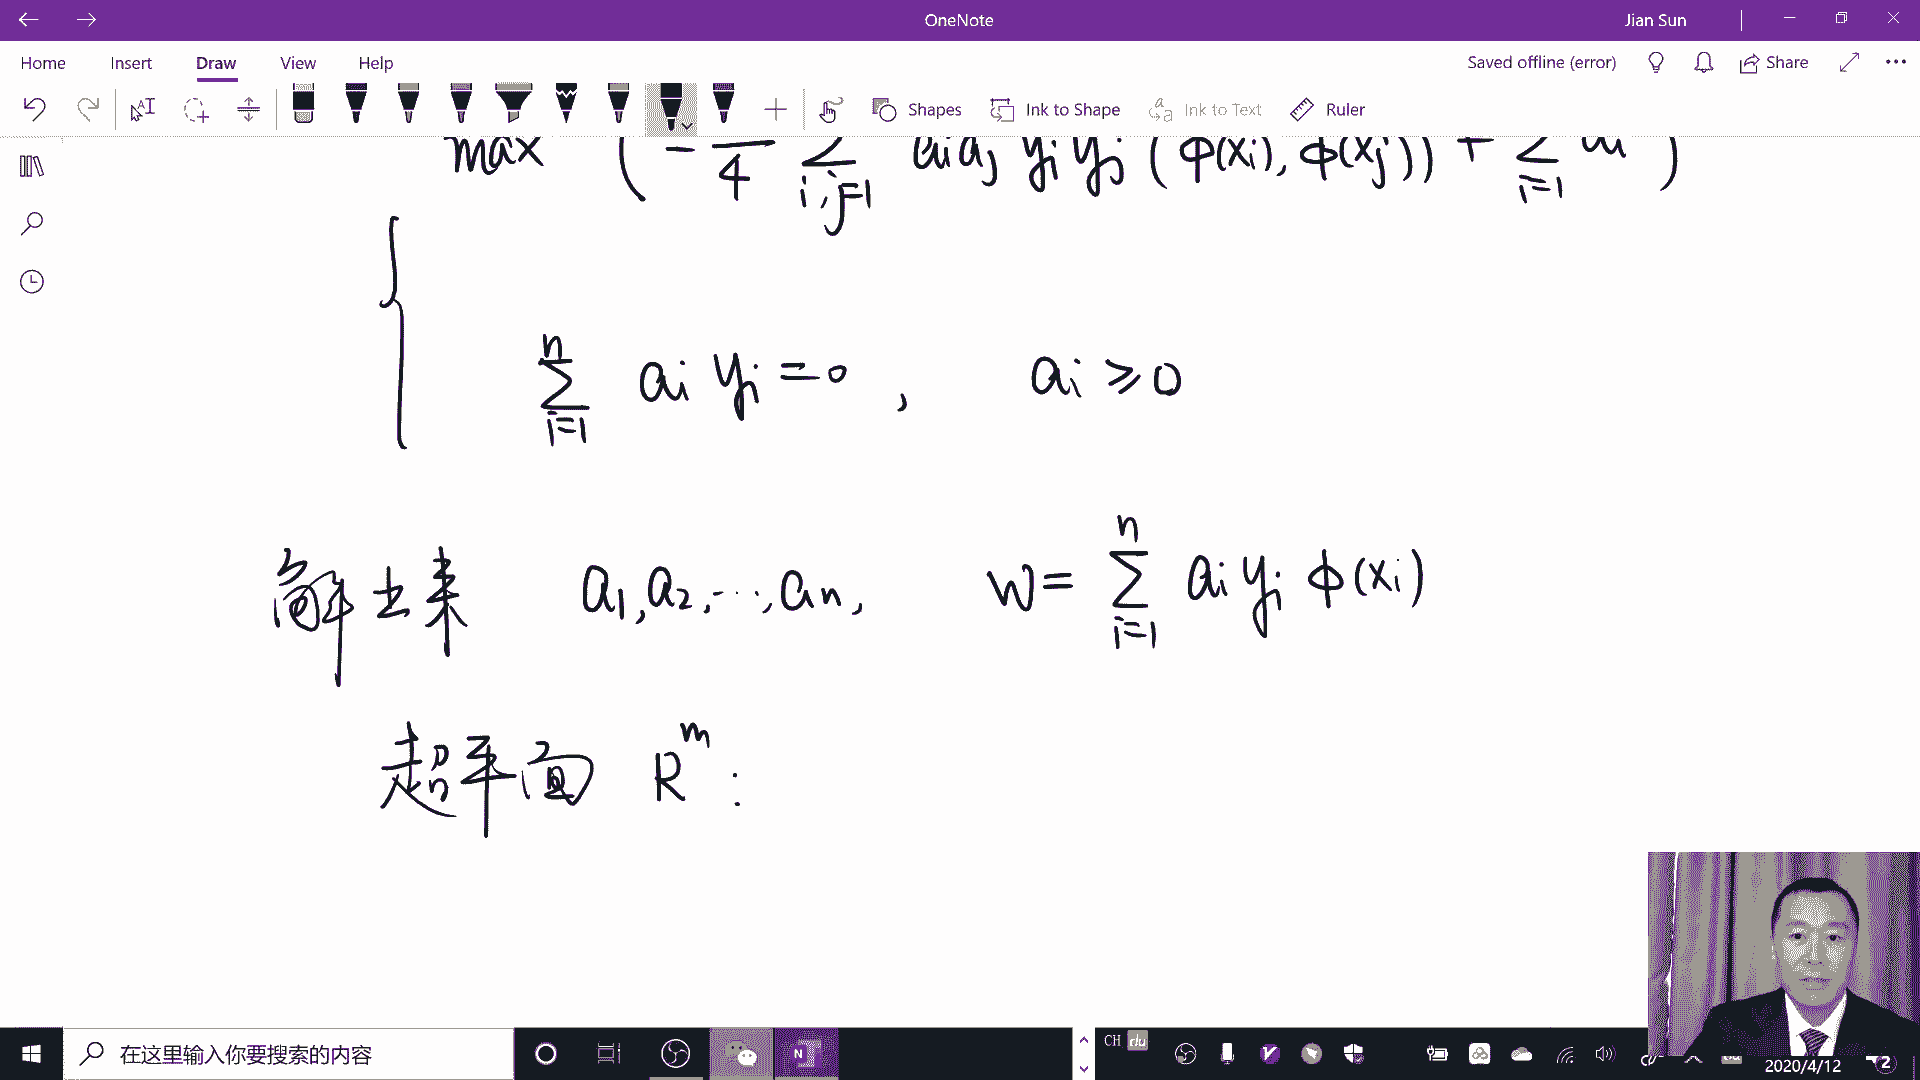 OneNote
Jian Sun
Home Insert Draw View Help
Saved offline (error) Share
Shapes Ink to Shape Ink to Text Ruler
max ( - — 4 Σ i,j=1 ai aj yi yj (Φ(xi), Φ(xj)) + Σ i=1 )
n Σ i=1 ai yi = 0 , ai ≥ 0
解出来 a1, a2, ..., an, W = n Σ i=1 ai yi Φ(xi)
超平面 R^m :
在这里输入你要搜索的内容
CH du
2020/4/12
2